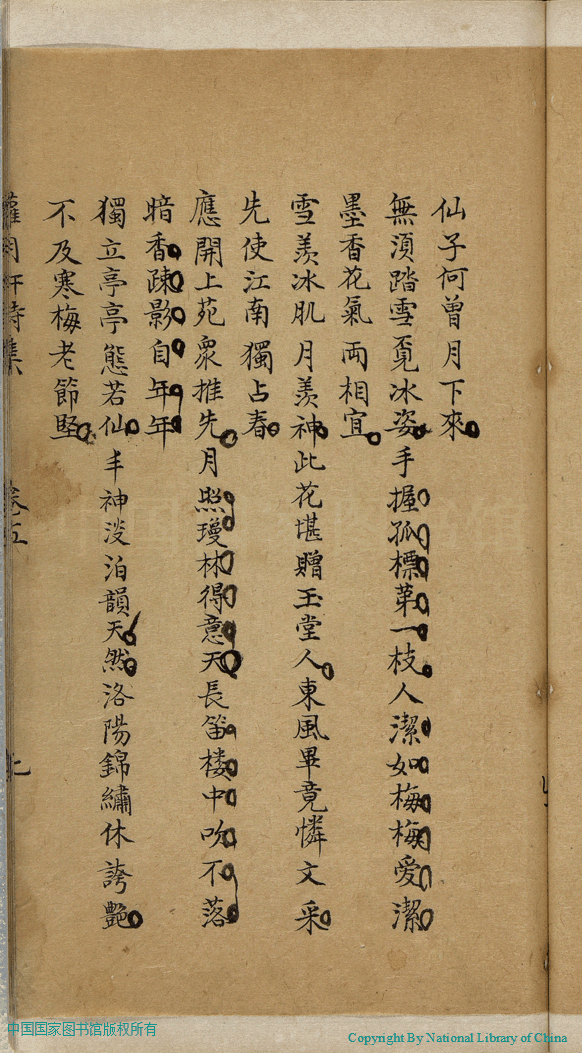 仙子何曾月下來
無湏踏雪覔冰姿手握孤標苐一枝人潔如梅梅愛潔
墨香花氣両相宜
雪羨冰肌月羨神此花堪贈玉堂人東風畢竟憐文采
先使江南獨占春
應開上苑衆推先月照瓊林得意天長笛楼中吹不落
暗香疎影自年年
獨立亭亭態若仙丰神淡泊韻天然洛陽錦繡休誇艷
不及寒梅老節堅
卷五
中国国家图书馆版权所有
Copyright By National Library of China